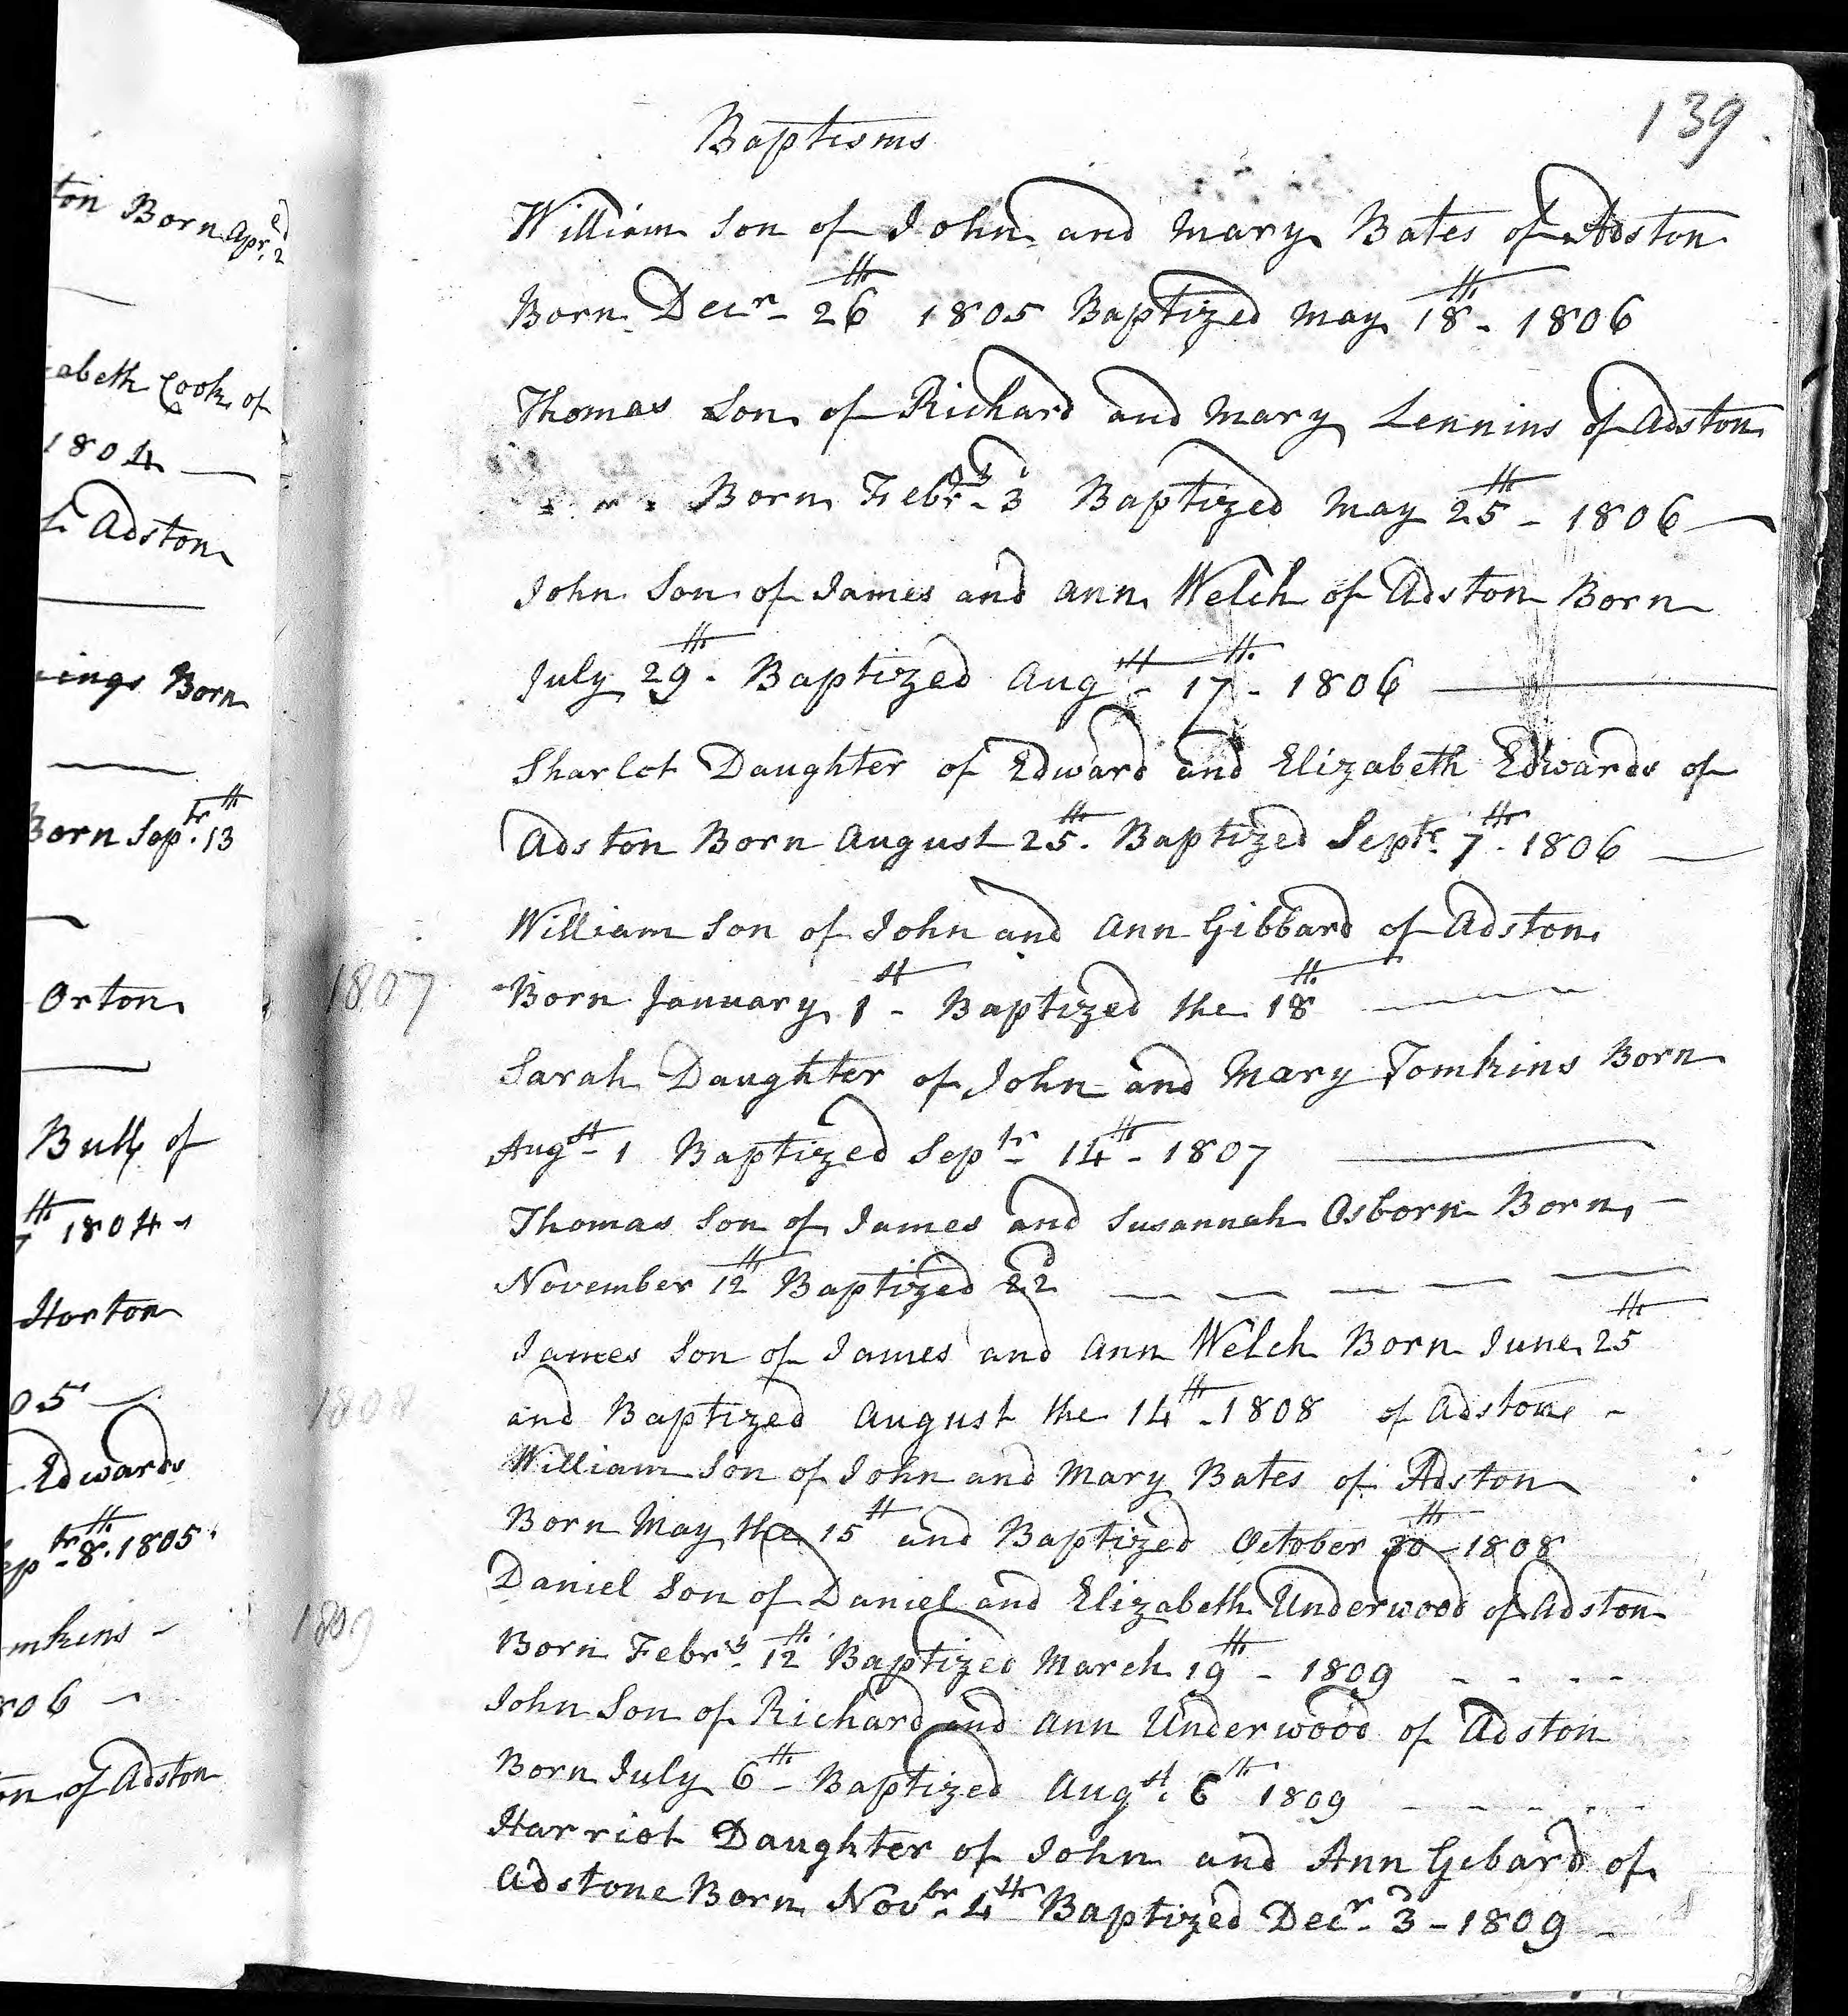 ton Born Apr. 2d
zabeth Cook of
1804
f Adston
ings Born
Born Sepr. 13th
Orton
Bull of
7th 1804
Horton
05
Edwards
Septr. 8th. 1805
mkins
806
on of Adston
139
Baptisms
William Son of John and Mary Bates of Adston
Born Decr 26th 1805 Baptized May 18th - 1806
Thomas Son of Richard and Mary Lennins of Adston
Born Febry 3d Baptized May 25th - 1806
John Son of James and Ann Welch of Adston Born
July 29th. Baptized Augst - 17th - 1806
Sharlot Daughter of Edward and Elizabeth Edwards of
Adston Born August 25th. Baptized Septr 7th - 1806
William Son of John and Ann Gibbard of Adston
1807 Born January 1st - Baptized the 18th
Sarah Daughter of John and Mary Tomkins Born
Augst - 1 Baptized Septr - 14th - 1807
Thomas Son of James and Susannah Osborn Born
November 12th Baptized 22d
James Son of James and Ann Welch Born June 25th
1808 and Baptized August the 14th - 1808 of Adstone
William Son of John and Mary Bates of Adston
Born May the 15th and Baptized October 30th - 1808
Daniel Son of Daniel and Elizabeth Underwood of Adston
1809 Born Febry 12th Baptized March 19th - 1809
John Son of Richard and Ann Underwood of Adston
Born July 6th - Baptized Augst. 6th 1809
Harriot Daughter of John and Ann Gebard of
Adstone Born Novbr - 4th Baptized Decr - 3d - 1809